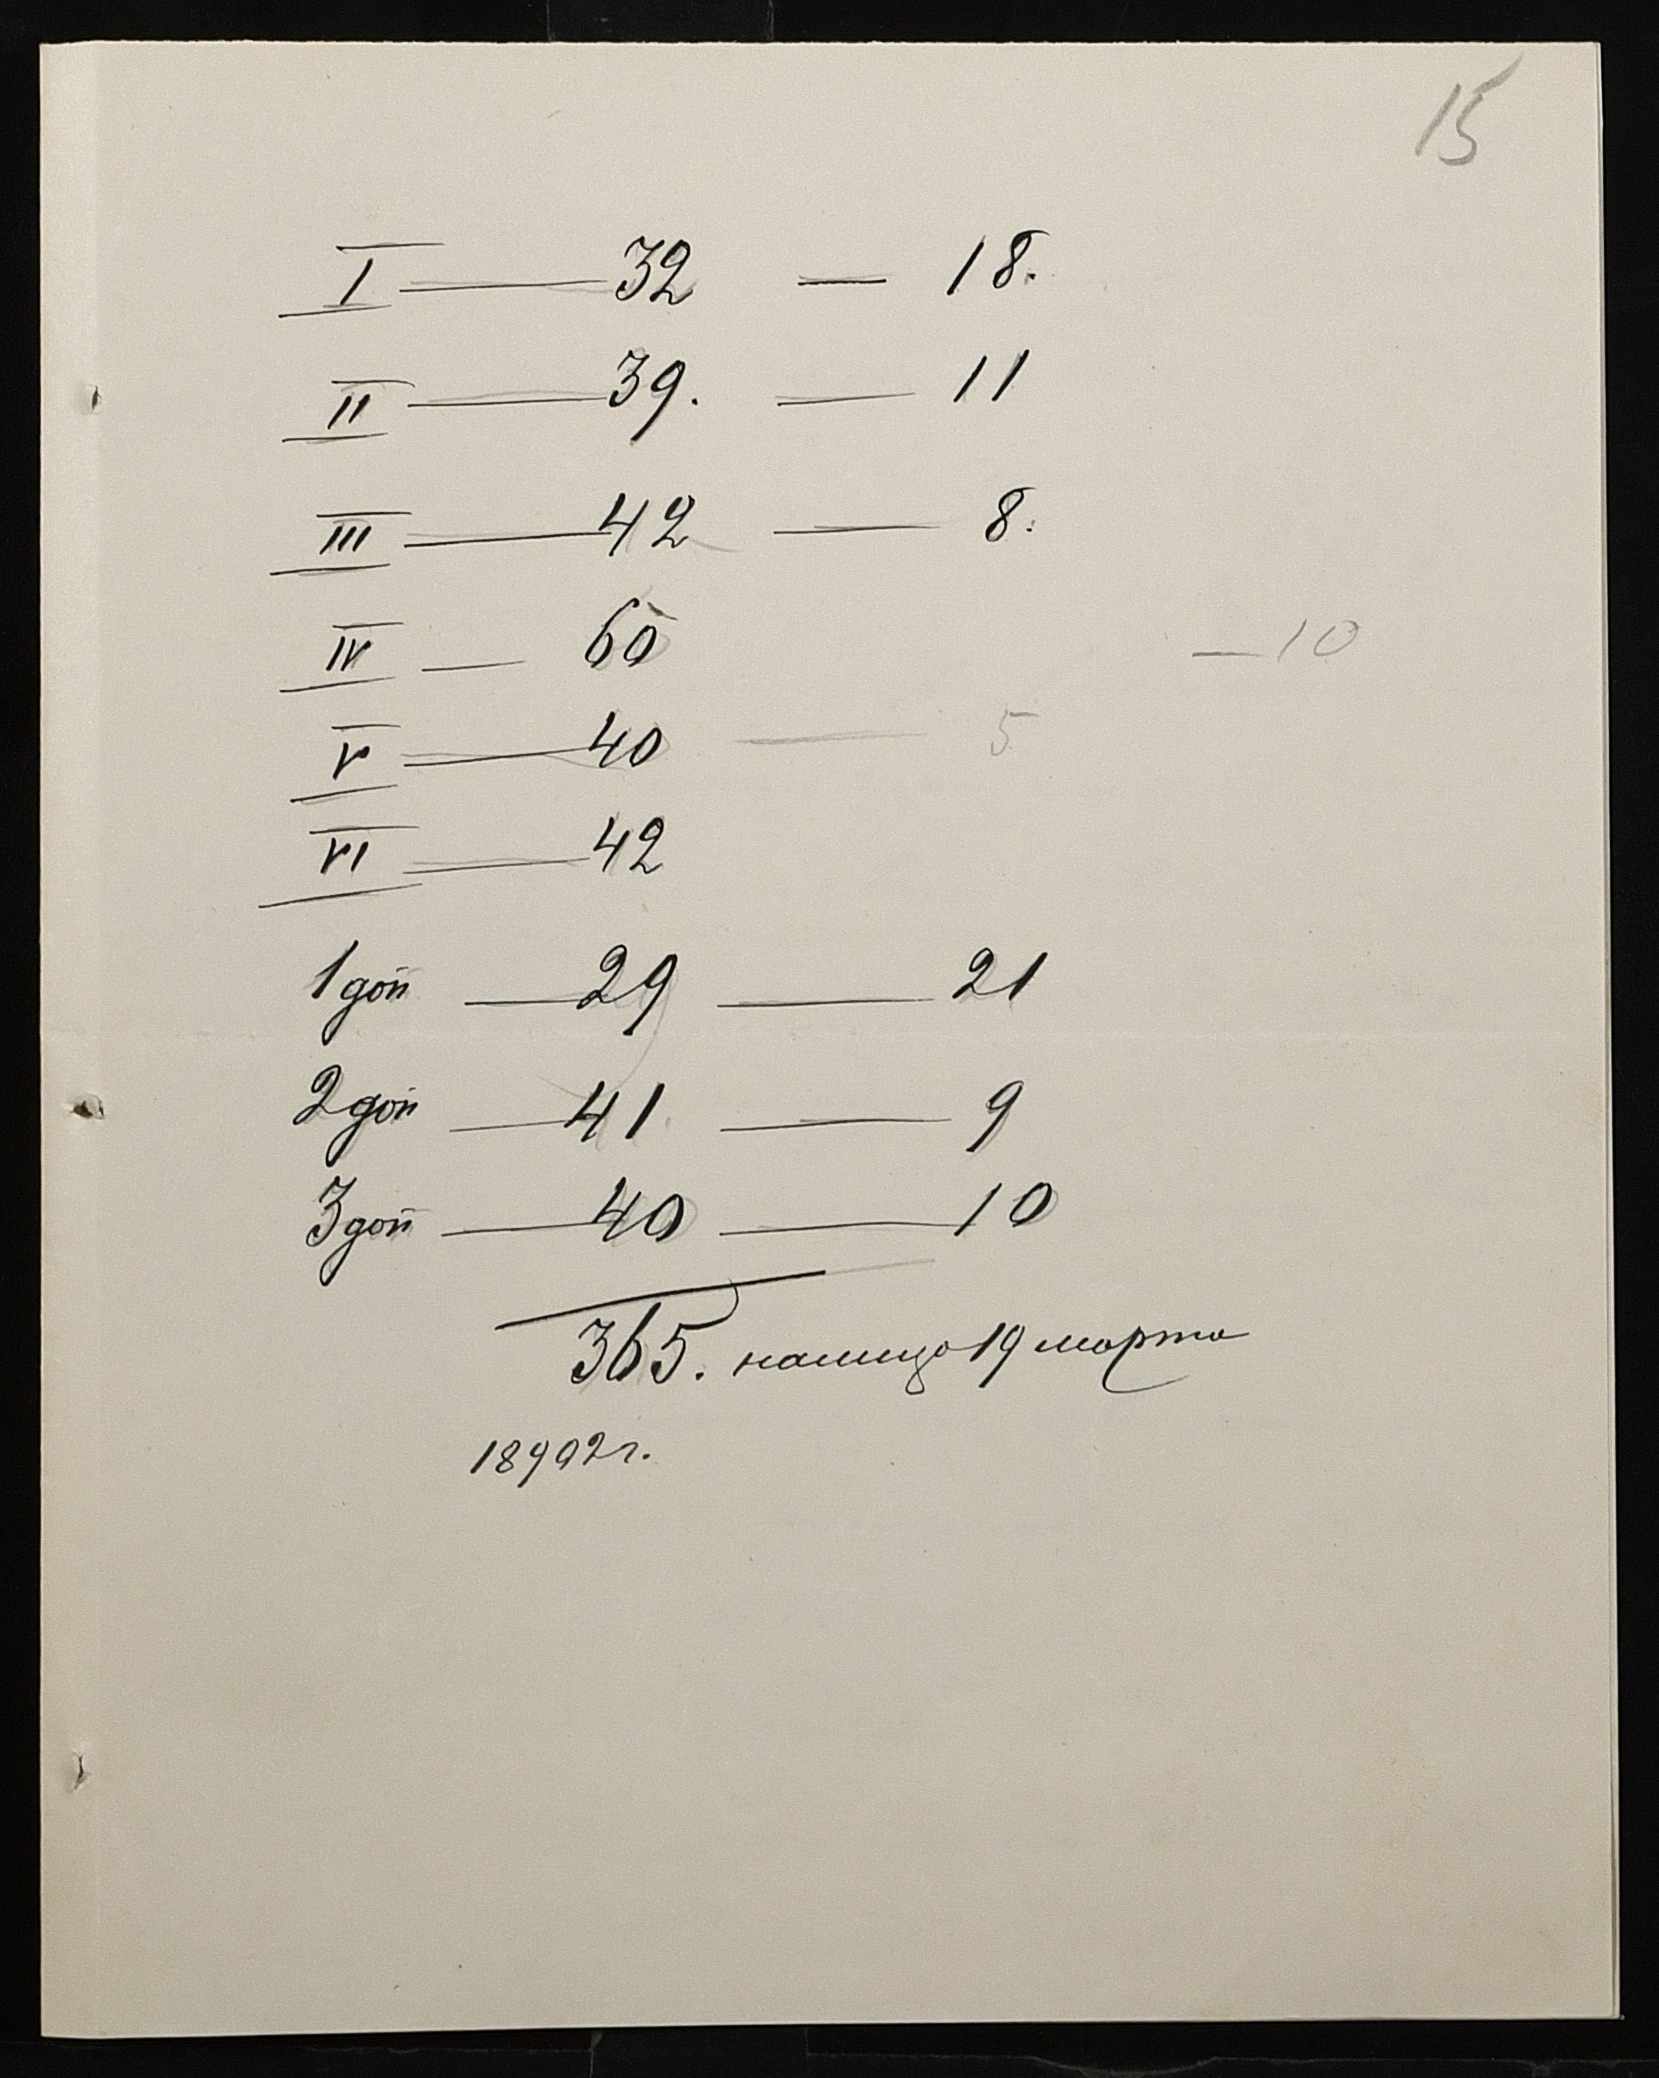 15
I — 32 — 18.
II — 39. — 11
III — 42 — 8.
IV — 60 — 10
V — 40 — 5
VI — 42
1 доп — 29 — 21
2 доп — 41 — 9
3 доп — 40 — 10
365. налицо 19 марта
18902 г.